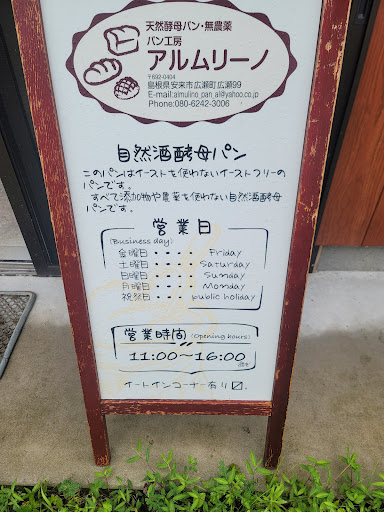 天然酵母パン・無農薬
パン工房
アルムリーノ
〒692-0404
島根県安来市広瀬町広瀬99
E-mail:almulino_pan_al@yahoo.co.jp
Phone:080-6242-3006
自然酒酵母パン
このパンはイーストを使わないイーストフリーの
パンです。
すべて添加物や農薬を使わない自然酒酵母
パンです。
営業日
(Business day)
金曜日・・・・Friday
土曜日・・・・Saturday
日曜日・・・・Sunday
月曜日・・・・Monday
祝祭日・・・・public holiday
営業時間 (Opening hours)
11:00~16:00
イートインコーナー有り〼。